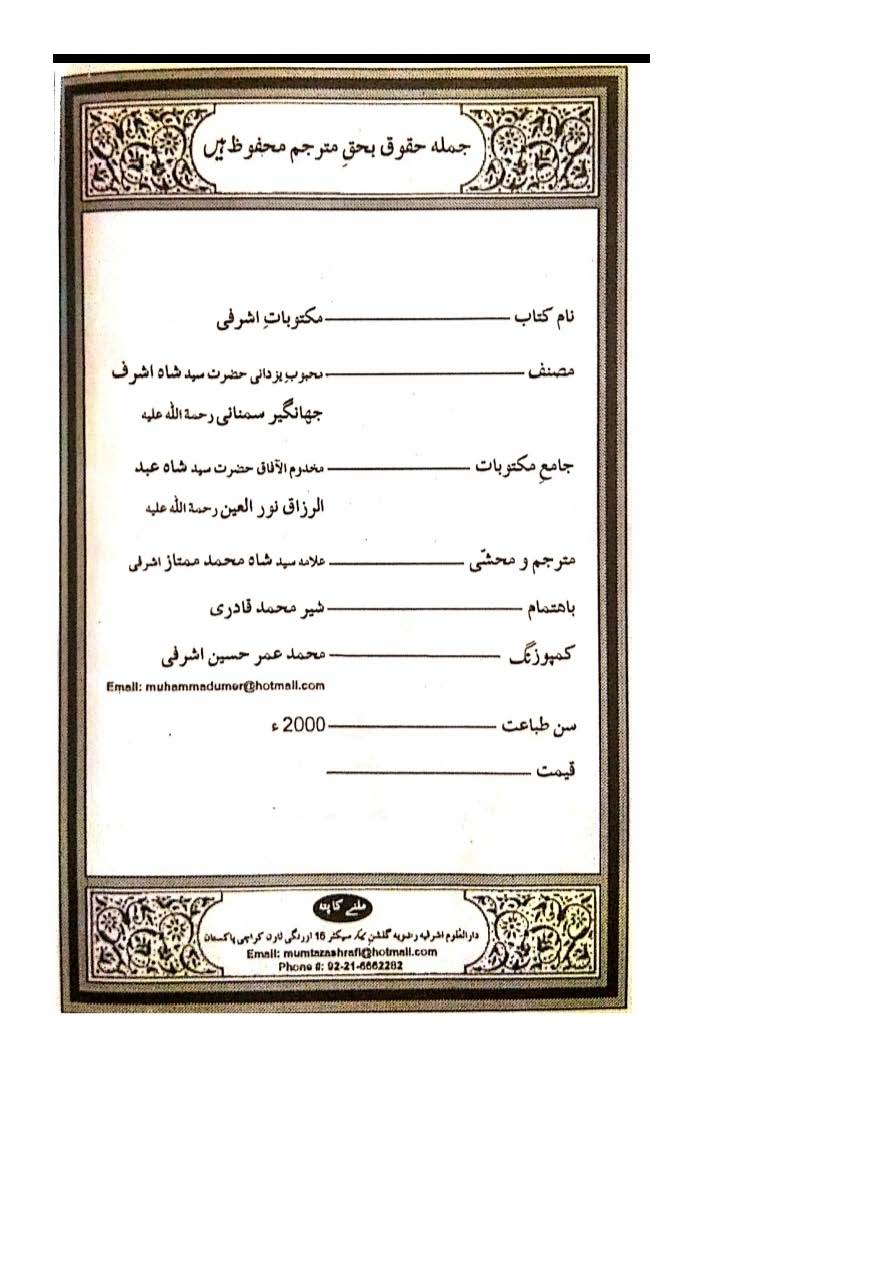 جملہ حقوق بحقِ مترجم محفوظ ہیں
نام کتاب ــــــــــ مکتوباتِ اشرفی
مصنف ــــــــــ محبوبِ یزدانی حضرت سید شاہ اشرف
جھانگیر سمنانی رحمۃ اللہ علیہ
جامعِ مکتوبات ــــــــــ مخدوم الآفاق حضرت سید شاہ عبد
الرزاق نور العین رحمۃ اللہ علیہ
مترجم و محشّی ــــــــــ علامہ سید شاہ محمد ممتاز اشرفی
باھتمام ــــــــــ شیر محمد قادری
کمپوزنگ ــــــــــ محمد عمر حسین اشرفی
Email: muhammadumer@hotmail.com
سن طباعت ــــــــــ 2000ء
قیمت ــــــــــ
ملنے کا پتہ
دارالعُلوم اشرفیہ رضویہ گلشنِ سیکٹر 16 اورنگی ٹاون کراچی پاکستان
Email: mumtazashrafi@hotmail.com
Phone #: 92-21-6662282